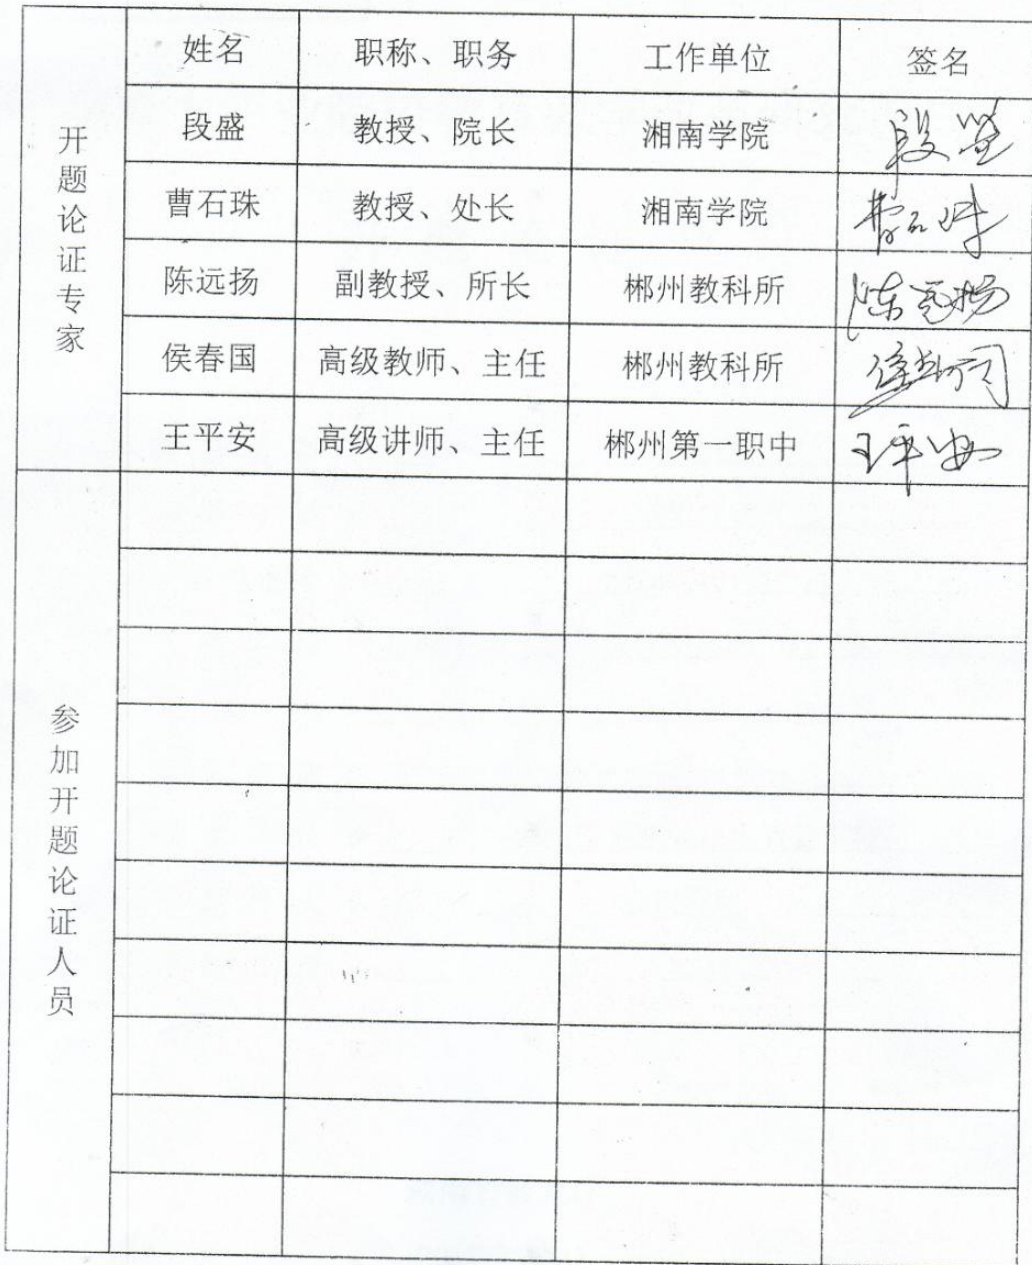 姓名 职称、职务 工作单位 签名
开题论证专家
段盛 教授、院长 湘南学院 段盛
曹石珠 教授、处长 湘南学院 曹石珠
陈远扬 副教授、所长 郴州教科所 陈远扬
侯春国 高级教师、主任 郴州教科所
王平安 高级讲师、主任 郴州第一职中 王平安
参加开题论证人员